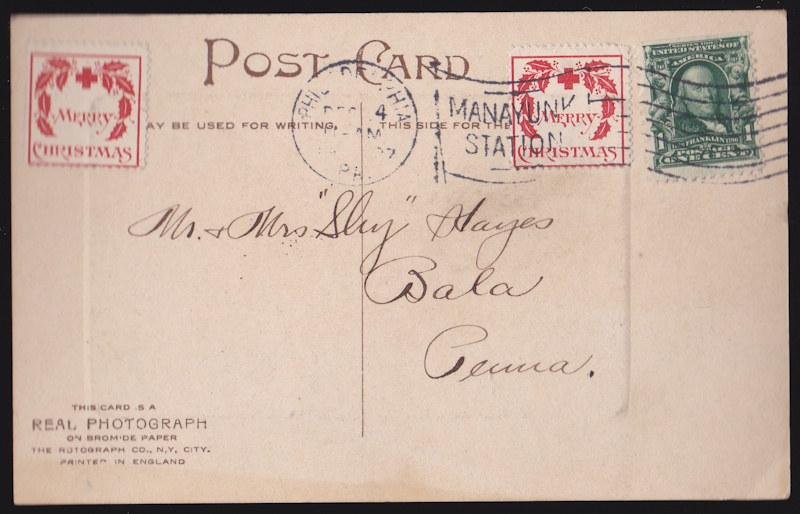 POST CARD
MERRY
CHRISTMAS
PHILADELPHIA
DEC 4
AM
07
PA.
MANAYUNK
STATION
MERRY
CHRISTMAS
SERIES 1902
UNITED STATES OF
AMERICA
1 FRANKLIN 1
ONE CENT
AY BE USED FOR WRITING, THIS SIDE FOR THE
Mr. & Mrs "Shy" Hayes
Bala
Penna.
THIS CARD IS A
REAL PHOTOGRAPH
ON BROMIDE PAPER
THE ROTOGRAPH CO., N.Y. CITY.
PRINTED IN ENGLAND